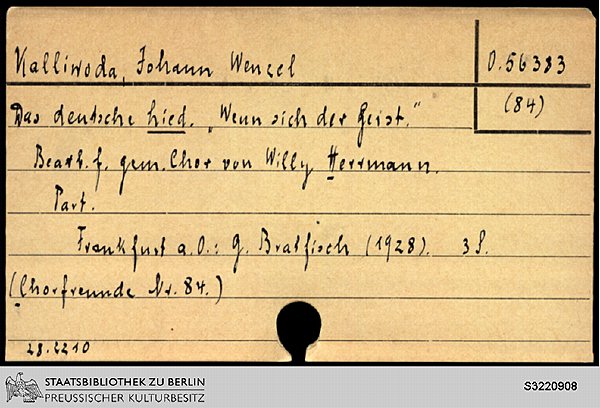 Kalliwoda, Johann Wenzel
O.56383
(84)
Das deutsche Lied. „Wenn sich der Geist."
Bearb. f. gem. Chor von Willy Herrmann.
Part.
Frankfurt a.O.: G. Bratfisch (1928). 3 S.
(Chorfreunde Nr. 84.)
28.2210
STAATSBIBLIOTHEK ZU BERLIN
PREUSSISCHER KULTURBESITZ
S3220908